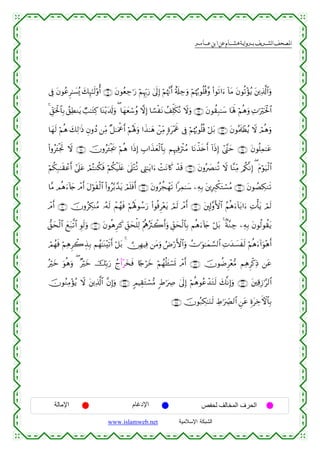 المصحف الشريف برواية هشام عن ابن عامر
وَالَّذِينَ يُؤْتُونَ مَا آتَوا وَّقُلُوبُهُمْ وَجِلَةٌ أَنَّهُمْ إِلَى رَبِّهِمْ رَاجِعُونَ أُولَئِكَ يُسَارِعُونَ فِي
الْخَيْرَاتِ وَهُمْ لَهَا سَابِقُونَ وَلَا نُكَلِّفُ نَفْسًا إِلَّا وُسْعَهَا وَلَدَيْنَا كِتَابٌ يَنطِقُ بِالْحَقِّ
وَهُمْ لَا يُظْلَمُونَ بَلْ قُلُوبُهُمْ فِي غَمْرَةٍ مِّنْ هَذَا وَلَهُمْ أَعْمَالٌ مِّن دُونِ ذَلِكَ هُمْ لَهَا
عَامِلُونَ حَتَّى إِذَا أَخَذْنَا مُتْرَفِيهِم بِالْعَذَابِ إِذَا هُمْ يَجْأَرُونَ لَا تَجْأَرُوا
الْيَوْمَ إِنَّكُم مِّنَّا لَا تُنصَرُونَ قَدْ كَانَتْ آيَاتِي تُتْلَى عَلَيْكُمْ فَكُنتُمْ عَلَى أَعْقَابِكُمْ
تَنكِصُونَ مُسْتَكْبِرِينَ بِهِ سَامِرًا تَهْجُرُونَ أَفَلَمْ يَدَّبَّرُوا الْقَوْلَ أَمْ جَاءَهُم مَّا
لَمْ يَأْتِ آبَاءَهُمُ الْأَوَّلِينَ أَمْ لَمْ يَعْرِفُوا رَسُولَهُمْ فَهُمْ لَهُ مُنكِرُونَ أَمْ
يَقُولُونَ بِهِ جِنَّةٌ بَلْ جَاءَهُم بِالْحَقِّ وَأَكْثَرُهُمْ لِلْحَقِّ كَارِهُونَ وَلَوِ اتَّبَعَ الْحَقُّ
أَهْوَاءَهُمْ لَفَسَدَتِ السَّمَاوَاتُ وَالْأَرْضُ وَمَن فِيهِنَّ بَلْ أَتَيْنَاهُم بِذِكْرِهِمْ فَهُمْ
عَن ذِكْرِهِم مُّعْرِضُونَ أَمْ تَسْأَلُهُمْ خَرْجًا فَخَرْجُ رَبِّكَ خَيْرٌ وَهُوَ خَيْرُ
الرَّازِقِينَ وَإِنَّكَ لَتَدْعُوهُمْ إِلَى صِرَاطٍ مُّسْتَقِيمٍ وَإِنَّ الَّذِينَ لَا يُؤْمِنُونَ
بِالْآخِرَةِ عَنِ الصِّرَاطِ لَنَاكِبُونَ
الحرف المخالف لحفص الإدغام الإمالة
الشبكة الإسلامية www.islamweb.net